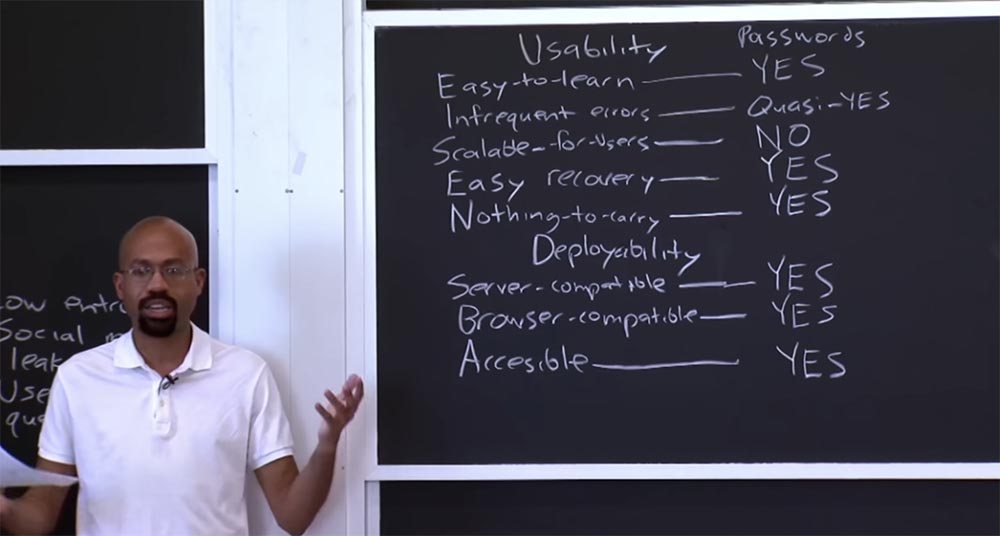 Usability Passwords
Easy-to-learn YES
Infrequent errors Quasi-YES
Scalable-for-users NO
Easy recovery YES
Nothing-to-carry YES
Deployability
Server-compatible YES
Browser-compatible YES
Accesible YES
Social
leak
Use